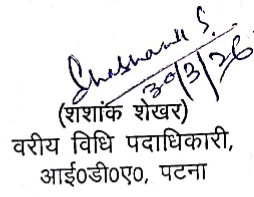 Shashank S.
30/3/26
(शशांक शेखर)
वरीय विधि पदाधिकारी,
आई0डी0ए0, पटना